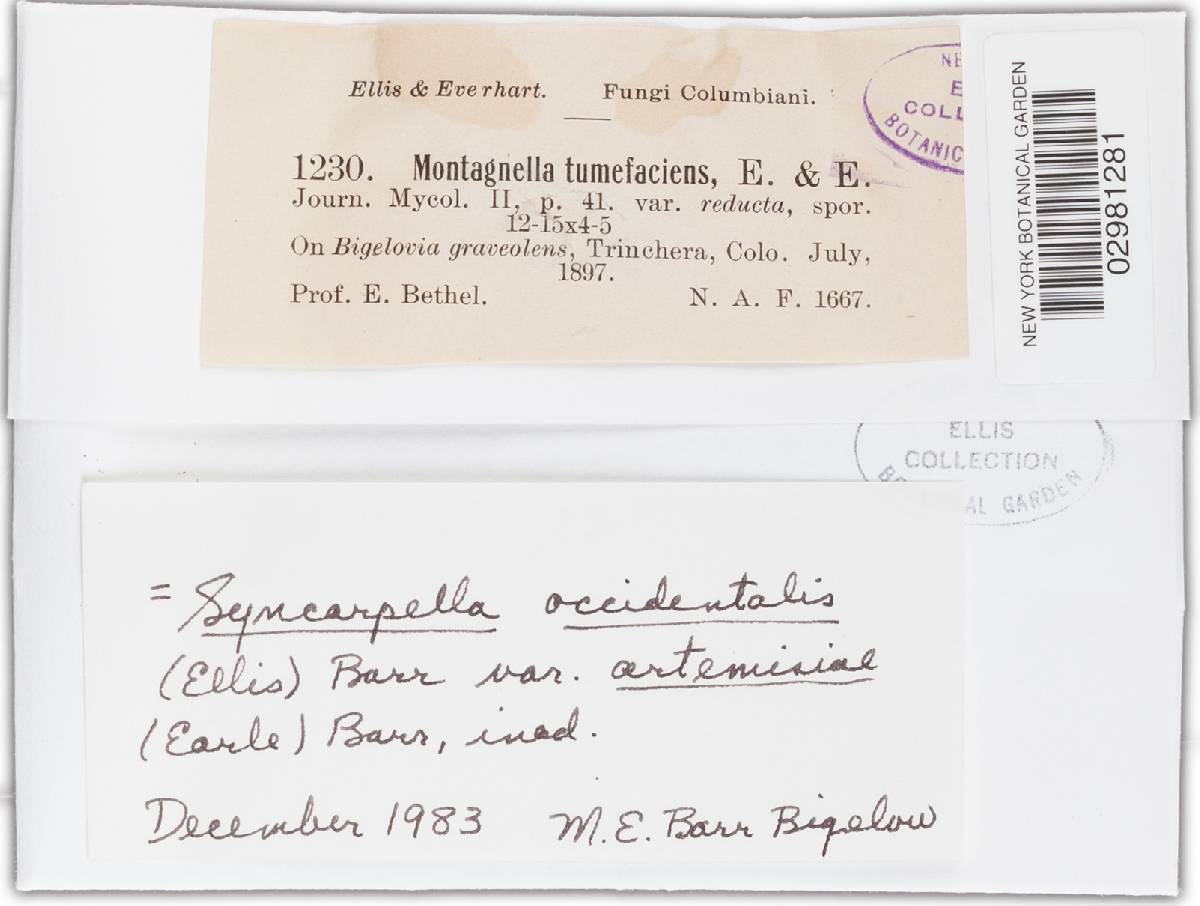 Ellis & Everhart. Fungi Columbiani.
1230. Montagnella tumefaciens, E. & E.
Journ. Mycol. II, p. 41. var. reducta, spor.
12-15x4-5
On Bigelovia graveolens, Trinchera, Colo. July,
1897.
Prof. E. Bethel. N. A. F. 1667.
NE
E
COLL
BOTANIC
NEW YORK BOTANICAL GARDEN
02981281
ELLIS
COLLECTION
AL GARDEN
= Syncarpella occidentalis
(Ellis) Barr var. artemisiae
(Earle) Barr, ined.
December 1983 M.E. Barr Bigelow